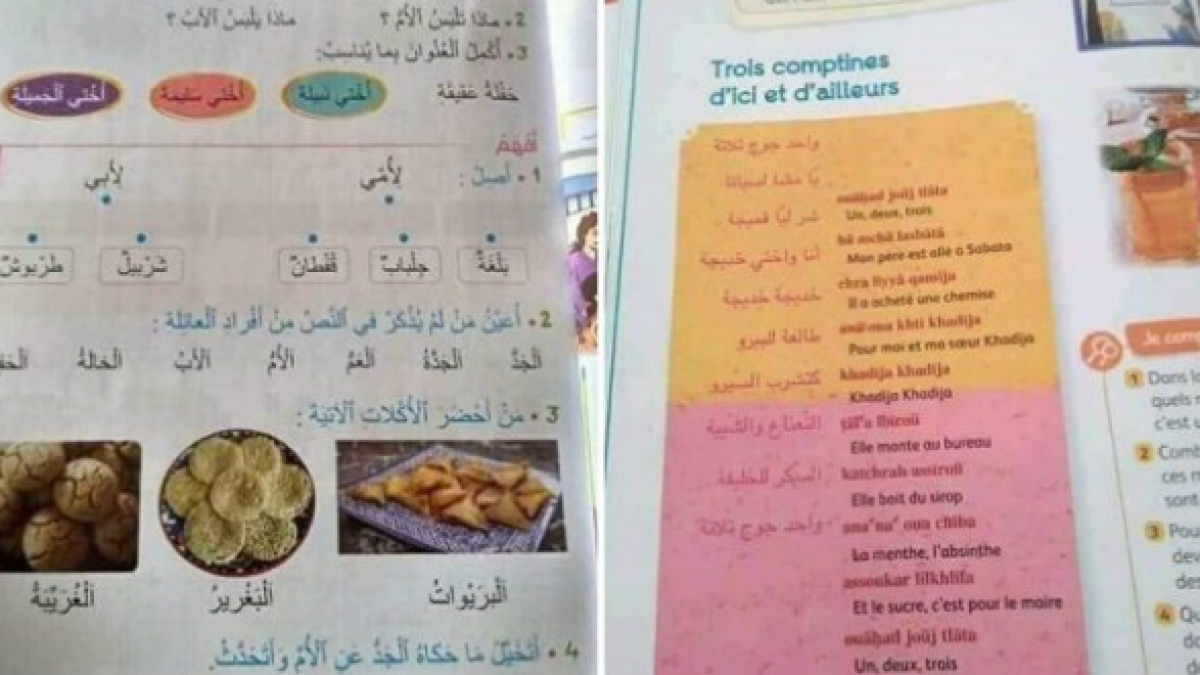 2 • ماذا تَلْبَسُ ٱلْأُمُّ ؟ ماذا يَلْبَسُ ٱلْأَبُ ؟
3 • أُكْمِلُ ٱلْعُنْوانَ بِما يُناسِبُ:
حَفْلَةُ عَقيقَةِ أُخْتي نَبيلَة أُخْتي سَليمَة أُخْتي ٱلْجَميلَة
أَفْهَمُ
1 • أَصِلُ :
لِأُمّي لِأَبي
بَلْغَةٌ جِلْبابٌ قُفْطانٌ شَرْبيلٌ طَرْبوشٌ
2 • أُعَيِّنُ مَنْ لَمْ يُذْكَرْ في ٱلنَّصِّ مِنْ أَفْرادِ ٱلْعائِلَةِ :
ٱلْجَدُّ ٱلْجَدَّةُ ٱلْعَمُّ ٱلْأُمُّ ٱلْأَبُ ٱلْخالَةُ
3 • مَنْ أَحْضَرَ ٱلْأَكَلاتِ ٱلْآتِيَةَ :
ٱلْبَرِيْواتُ ٱلْبَغْريرُ ٱلْغُرَيِّبَةُ
4 • أَتَخَيَّلُ ما حَكاهُ ٱلْجَدُّ عَنِ ٱلْأُمِّ وَأَتَحَدَّثُ.
Trois comptines
d'ici et d'ailleurs
واحد جوج تلاتة
بّا مشا لسباتا
شر ليّا قميجة
أنا واختي خديجة
خديجة خديجة
طالعة للبيرو
كتشرب السيرو
النّعناع والشّيبة
السكر للخليفة
واحد جوج تلاتة
ouāḥad joūj tlāta
Un, deux, trois
bā mchā lasbātā
Mon père est allé à Sabata
chra liyyā qamija
Il a acheté une chemise
anā oua khti khadija
Pour moi et ma sœur Khadija
khadija khadija
Khadija Khadija
ṭāl'a lbiroū
Elle monte au bureau
katchrab assiroū
Elle boit du sirop
ana'na' oua chiba
La menthe, l'absinthe
assoukar lilkhlifa
Et le sucre, c'est pour le maire
ouāḥad joūj tlāta
Un, deux, trois
1 Dans
quels
c'est
2 Comb
ces
sont
3 Pou
4